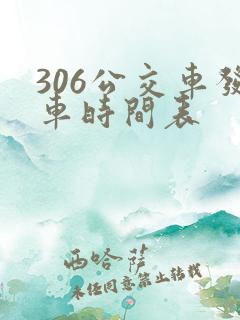 306公交車發
車時間表
西哈薩
未经同意禁止转载